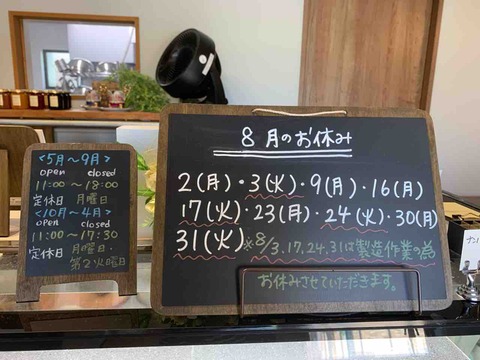 <5月～9月>
open closed
11:00 ～ 18:00
定休日 月曜日
<10月～4月>
open closed
11:00 ～ 17:30
定休日 月曜日・
第2火曜日
8月のお休み
2(月)・3(火)・9(月)・16(月)
17(火)・23(月)・24(火)・30(月)
31(火)※8/3.17.24.31は製造作業の為
お休みさせていただきます。